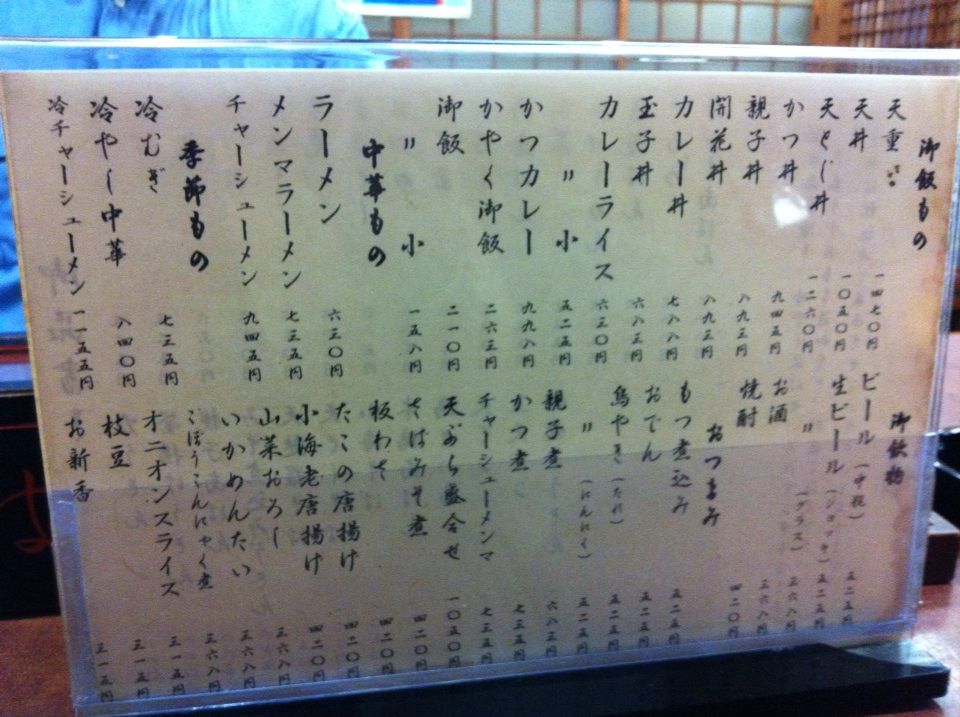 御飯もの
天重 一四七〇円
天丼 一〇五〇円
天とじ丼 一二六〇円
かつ丼 九四五円
親子丼 八九三円
開花丼 八九三円
カレー丼 七八八円
玉子丼 六八三円
カレーライス 六三〇円
〃 小 五二五円
かつカレー 九九八円
かやく御飯 二六三円
御飯 二一〇円
〃 小 一五八円
中華もの
ラーメン 六三〇円
メンマラーメン 七三五円
チャーシューメン 九四五円
季節もの
冷むぎ 七三五円
冷やし中華 八四〇円
冷チャーシューメン 一一五五円
御飲物
ビール（中瓶） 五二五円
生ビール（ジョッキ） 五二五円
〃（グラス） 三六八円
お酒 三六八円
焼酎 四二〇円
おつまみ
もつ煮込み 五二五円
おでん 五二五円
鳥やき（たれ） 五二五円
〃（にんにく） 五二五円
親子煮 六八三円
かつ煮 七三五円
チャーシューメンマ 七三五円
天ぷら盛合せ 一〇五〇円
さばみそ煮 四二〇円
板わさ 四二〇円
たこの唐揚げ 四二〇円
小海老唐揚げ 四二〇円
山菜おろし 三六八円
いかめんたい 三六八円
ごぼうこんにゃく煮 三六八円
オニオンスライス 三一五円
枝豆 三一五円
お新香 三一五円